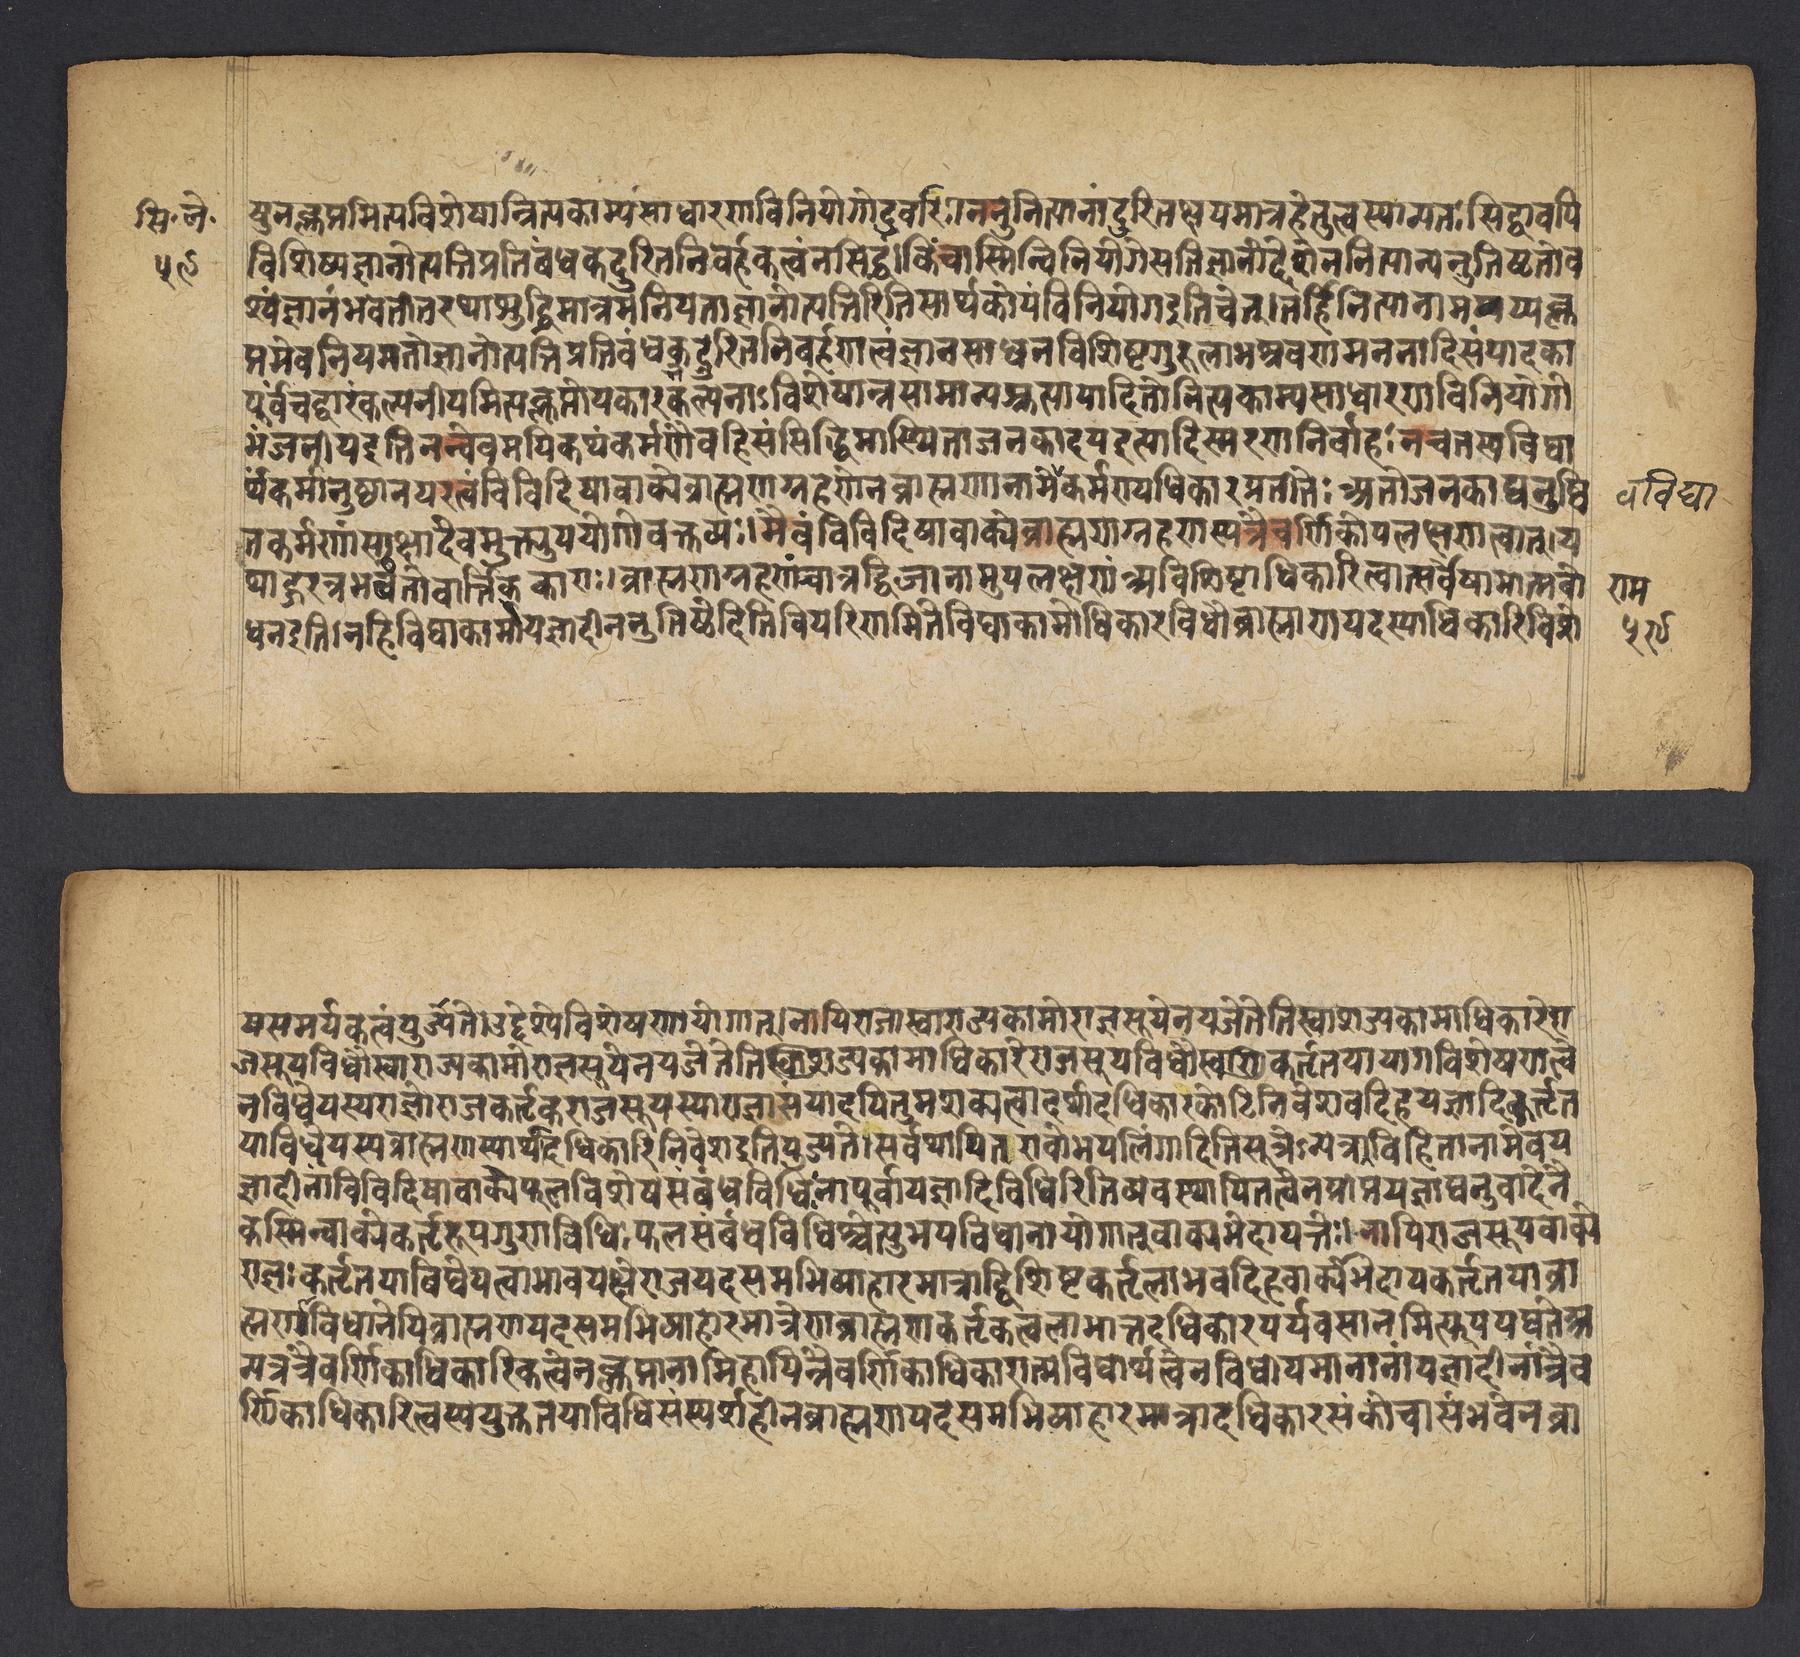 सि.ले.
५९
पुनःकॢप्तमित्यविशेषान्नित्यकाम्यसाधारणाविनियोगोदुर्वारः।ननुनित्यानांदुरितक्षयमात्रहेतुत्वस्यान्यतःसिद्धावपि
विशिष्यज्ञानोत्पत्तिप्रतिबंधकदुरितनिबर्हकत्वंनसिद्धं।किंचास्मिन्विनियोगेसतिज्ञानोद्देशेननित्यान्यनुतिष्ठतोव
श्यंज्ञानंभवतीतरथाशुद्धिमात्रमनियताज्ञानोत्पत्तिरितिसार्थकोयंविनियोगइतिचेत्।तर्हिनित्यानामप्यकॢ
प्तमेवनियमतोज्ञानोत्पत्तिप्रतिबंधकदुरितनिबर्हणत्वंज्ञानसाधनविशिष्टगुरुलाभश्रवणमननादिसंपादका
पूर्वंचद्वारंकल्पनीयमित्यकॢप्तोपकारकल्पनाऽविशेषान्नसामान्यश्रुत्यापादितोनित्यकाम्यसाधारणविनियोगो
भंजनीयइतिनन्वेवमपिकथंकर्मणैवहिसंसिद्धिमास्थिताजनकादयइत्यादिस्मरणनिर्वाहः।नचतस्यविद्या
र्थकर्मानुष्ठानपरत्वंविविदिषावाक्येब्राह्मणग्रहणेनब्राह्मणानामेवविद्यार्थकर्मण्यधिकारप्रतीतेः।अतोजनकाद्यनुष्ठि
वविद्या
तकर्मणांसाक्षादेवमुक्त्युपयोगोवक्तव्यः।मैवंविविदिषावाक्येब्राह्मणग्रहणस्यत्रैवर्णिकोपलक्षणत्वात्।य
थाहुरत्रभवंतोवार्त्तिककाराः।ब्राह्मणग्रहणंचात्रद्विजानामुपलक्षणंअविशिष्टाधिकारित्वात्सर्वेषामात्मबो
राम
धनइति।नहिविद्याकामोयज्ञादीननुतिष्ठेदितिविपरिणमितेविद्याकामोधिकारविधौब्राह्मणपदस्याधिकारिविशे
५९
षसमर्पकत्वंयुज्यते।उद्देश्येविशेषणायोगात्।नापिराजास्वाराज्यकामोराजसूयेनयजेतेतिस्वाराज्यकामाधिकारेरा
जसूयविधौस्वाराज्यकामोराजसूयेनयजेतेतिस्वाराज्यकामाधिकारेराजसूयविधौस्वर्गकर्तृतयायागविशेषणत्वे
नविधेयस्यराज्ञोराजकर्तृकराजसूयस्याराज्ञासंपादयितुमशक्यत्वादर्थादधिकारकोटिनिवेशवदिहयज्ञादिकर्तृत
याविधेयस्यब्राह्मणस्यार्थादधिकारिनिवेशइतियुज्यते।सर्वथापितएवोभयलिंगादितिसूत्रेऽन्यत्राविहितानामेवय
ज्ञादीनांविविदिषावाक्येफलविशेषसंबंधविधिःनापूर्वायज्ञादिविधिरितिव्यवस्थापितत्वेनप्राप्तयज्ञाद्यनुवादेनै
कस्मिन्वाक्येकर्तृरूपगुणविधिःफलसंबंधविधिश्चेत्युभयविधानायोगात्।वाक्यभेदापत्तेः।नापिराजसूयवाक्ये
राज्ञःकर्तृतयाविधेयत्वाभावपक्षेराजपदसमभिव्याहारमात्राद्विशिष्टकर्तृलाभवदिहवाक्यभेदायकर्तृतयाब्रा
ह्मणाविधानेपिब्राह्मणपदसमभिव्याहारमात्रेणब्राह्मणकर्तृकत्वलाभात्तदधिकारपर्यवसानमित्युपपद्यतेअ
न्यत्रत्रैवर्णिकाधिकारिकत्वेनकॢप्तानामिहापित्रैवर्णिकाधिकारात्मविद्यार्थत्वेनविधीयमानानांयज्ञादीनांत्रैव
र्णिकाधिकारित्वस्ययुक्ततयाविधिसंस्पर्शहीनब्राह्मणपदसमभिव्याहारमात्रादधिकारसंकोचासंभवेनब्रा